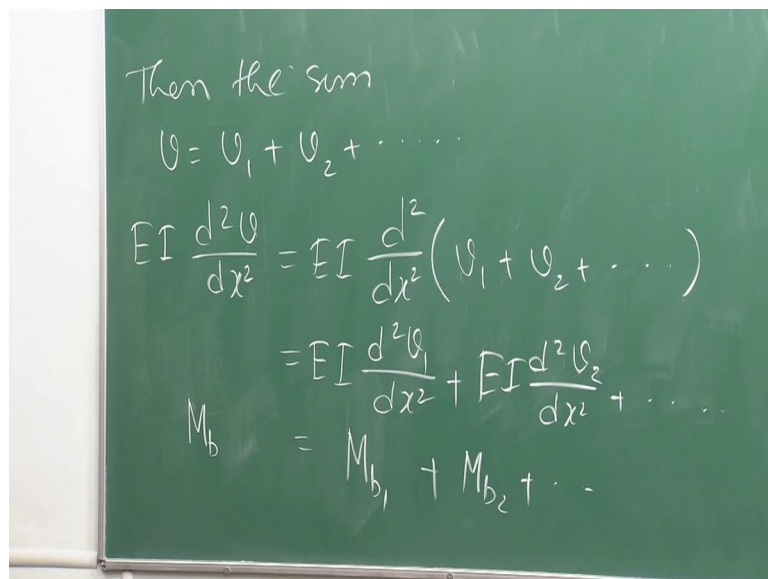 Then the sum
υ = υ₁ + υ₂ + ......
EI d²υ/dx² = EI d²/dx² (υ₁ + υ₂ + ....)
= EI d²υ₁/dx² + EI d²υ₂/dx² + .....
M_b = M_b₁ + M_b₂ + ...